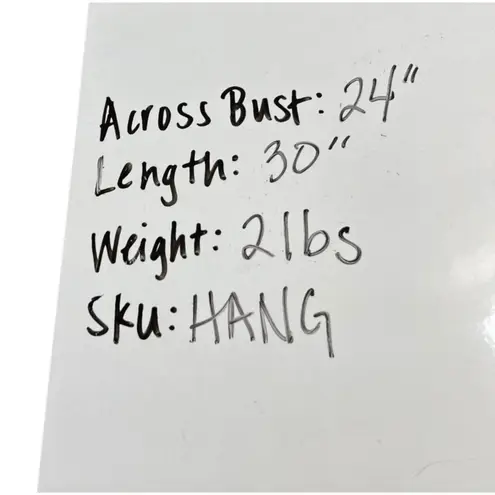 Across Bust: 24"
Length: 30"
Weight: 2lbs
SKU: HANG